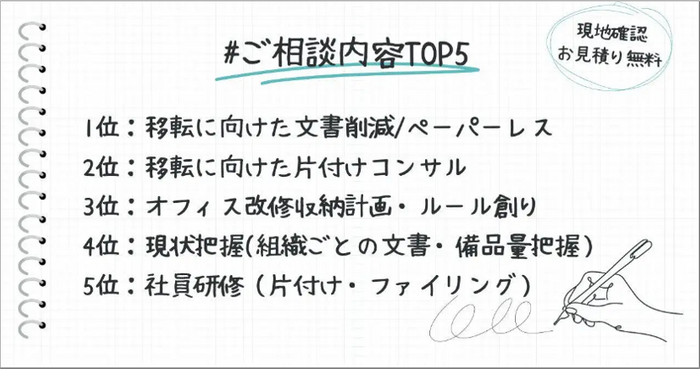 #ご相談内容TOP5
現地確認
お見積り無料
1位：移転に向けた文書削減/ペーパーレス
2位：移転に向けた片付けコンサル
3位：オフィス改修収納計画・ルール創り
4位：現状把握(組織ごとの文書・備品量把握)
5位：社員研修（片付け・ファイリング）